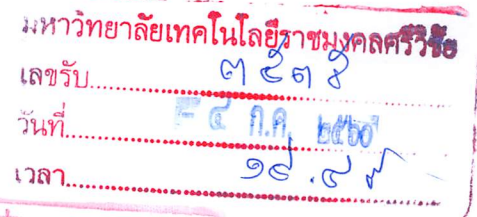 มหาวิทยาลัยเทคโนโลยีราชมงคลศรีวิชัย
เลขรับ.......... ๓๕๓๕
วันที่.......... - ๔ ก.ค. ๒๕๖๐
เวลา..........